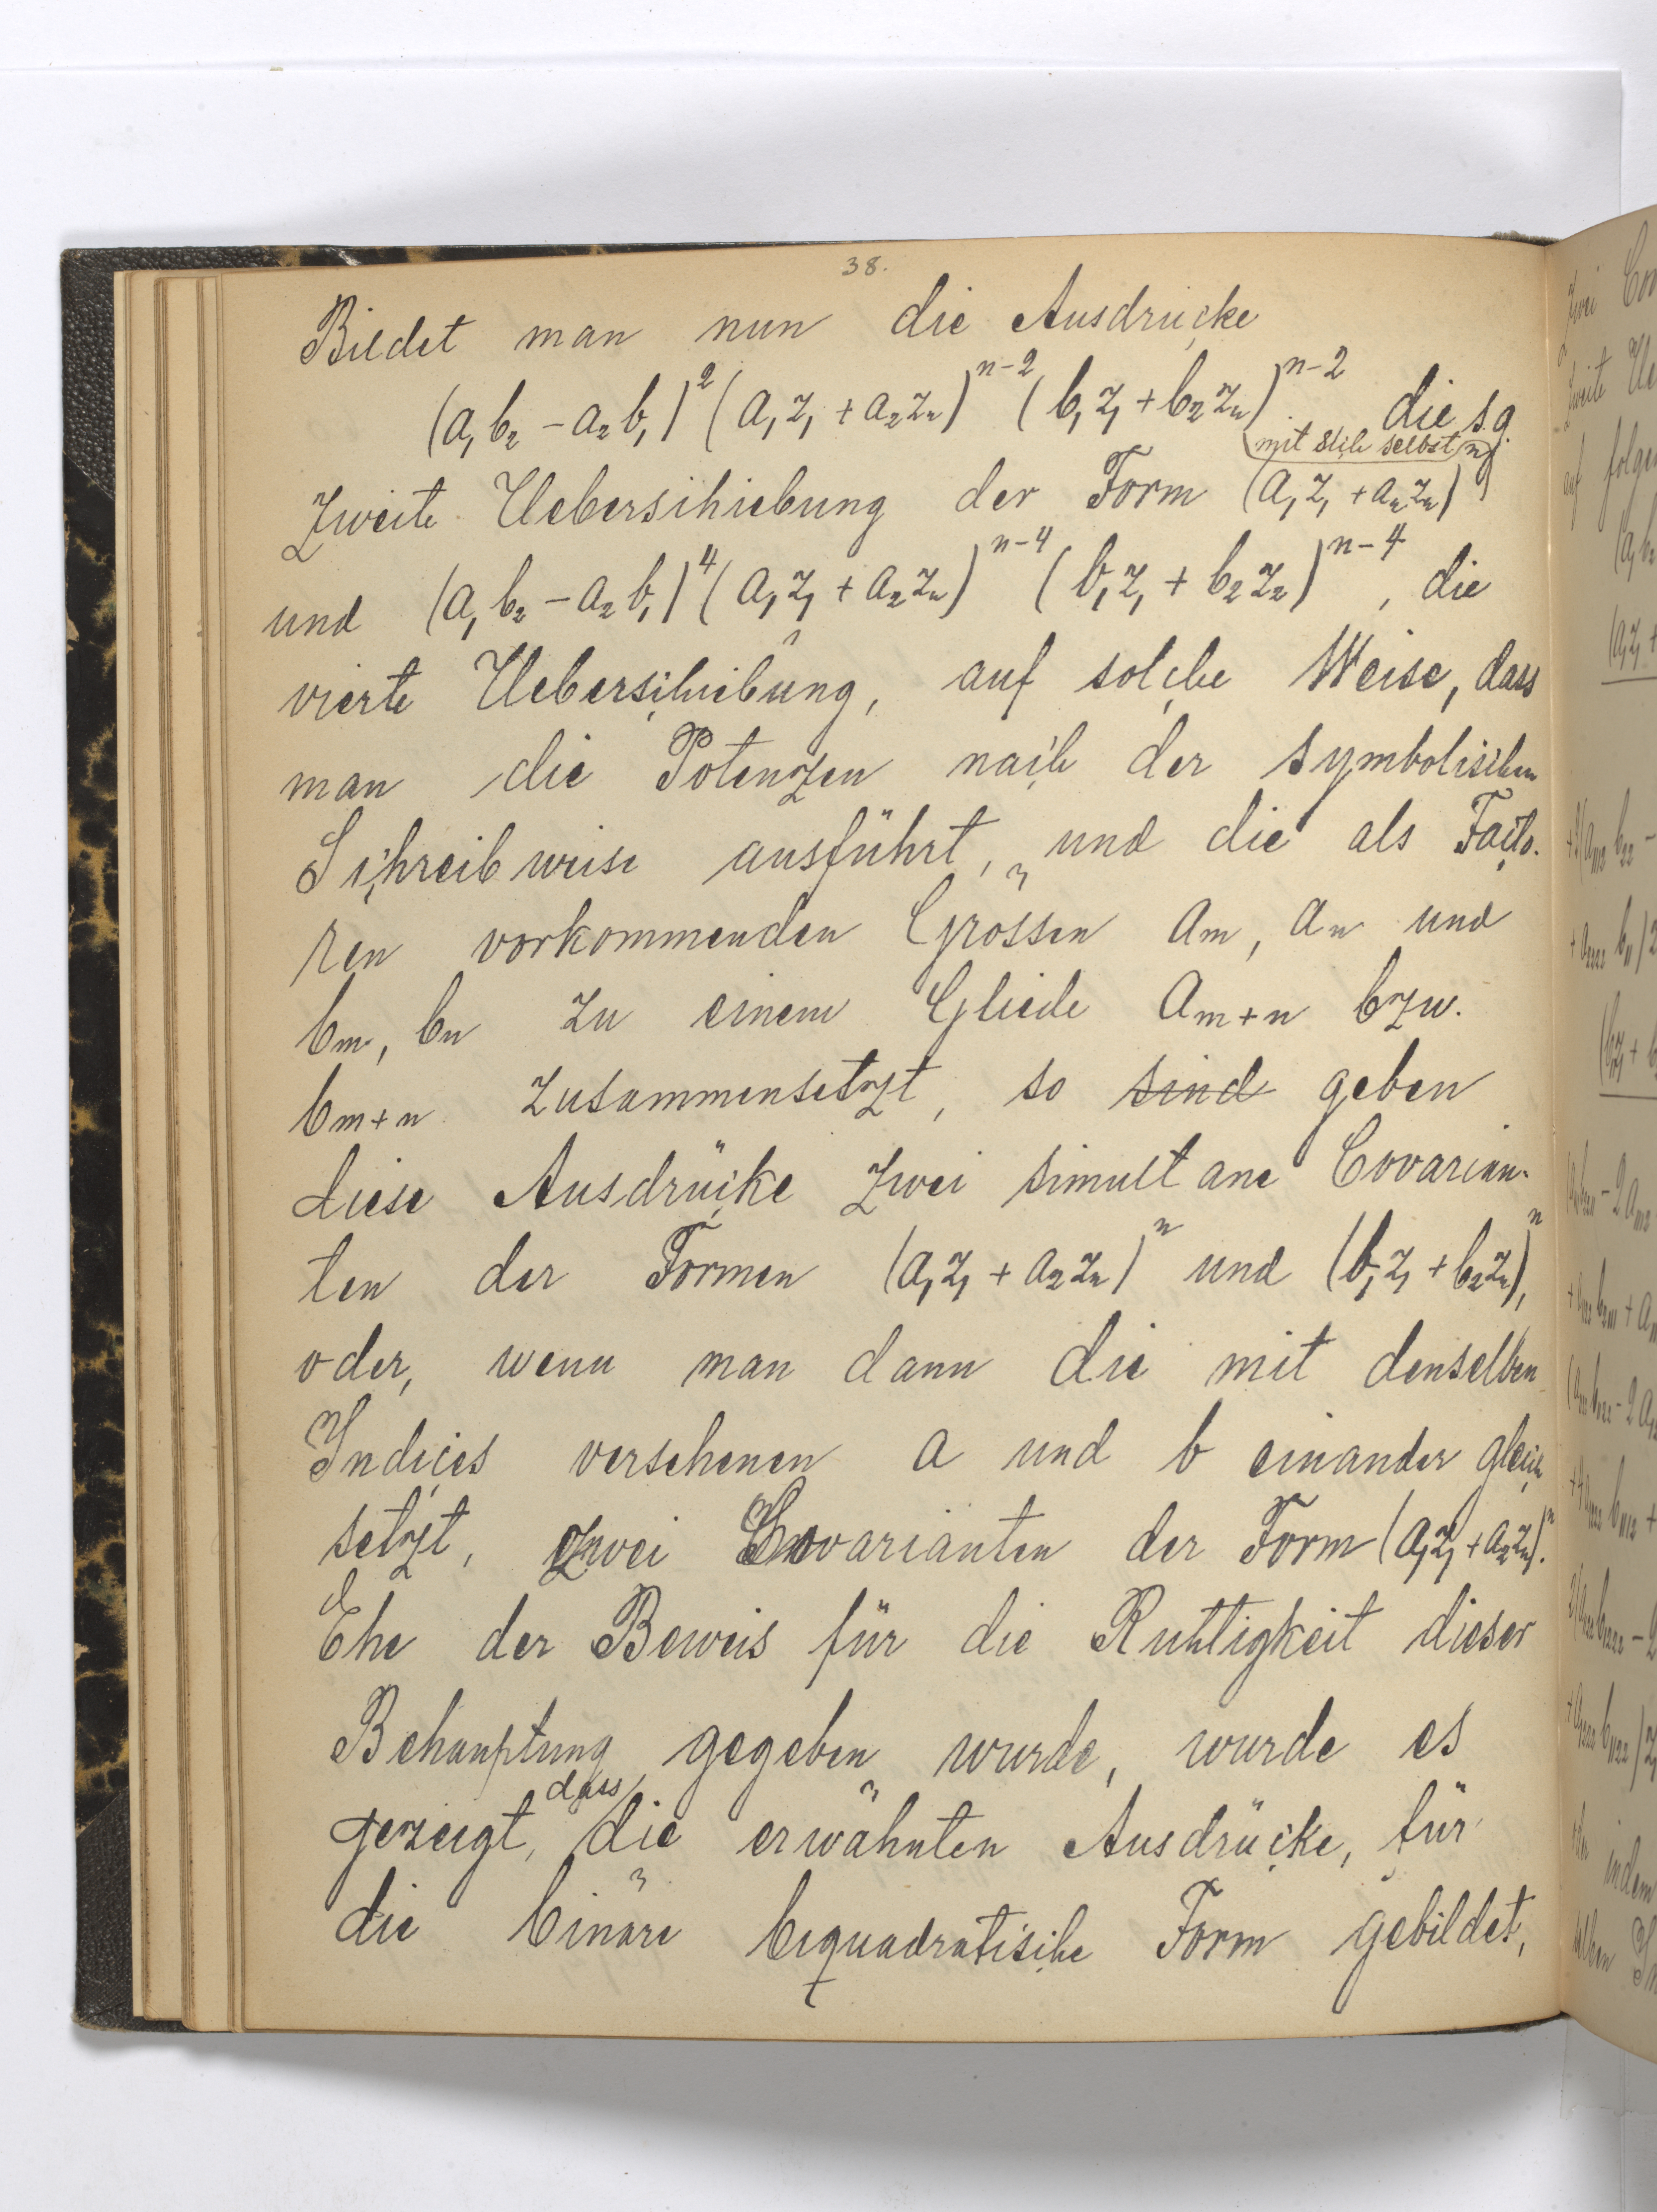 38.
Bildet man nun die Ausdrücke
(a₁b₂ - a₂b₁)² (a₁z₁ + a₂z₂)ⁿ⁻² (b₁z₁ + b₂z₂)ⁿ⁻². die s.g.
mit sich selbst
zweite Ueberschiebung der Form (a₁z₁ + a₂z₂)ⁿ
und (a₁b₂ - a₂b₁)⁴ (a₁z₁ + a₂z₂)ⁿ⁻⁴ (b₁z₁ + b₂z₂)ⁿ⁻⁴, die
vierte Ueberschiebung, auf solche Weise, dass
man die Potenzen nach der symbolischen
Schreibweise ausführt, und die als Facto-
ren vorkommenden Grössen aₘ, aₙ und
bₘ, bₙ zu einem Gliede aₘ₊ₙ bzw.
bₘ₊ₙ zusammensetzt, so sind geben
diese Ausdrücke zwei simultane Covarian-
ten der Formen (a₁z₁ + a₂z₂)ⁿ und (b₁z₁ + b₂z₂)ⁿ,
oder, wenn man dann die mit denselben
Indices versehenen a und b einander gleich
setzt, zwei Covarianten der Form (a₁z₁ + a₂z₂)ⁿ.
Ehe der Beweis für die Richtigkeit dieser
Behauptung gegeben wurde, wurde es
dass
gezeigt, die erwähnten Ausdrücke, für
die binäre biquadratische Form gebildet,